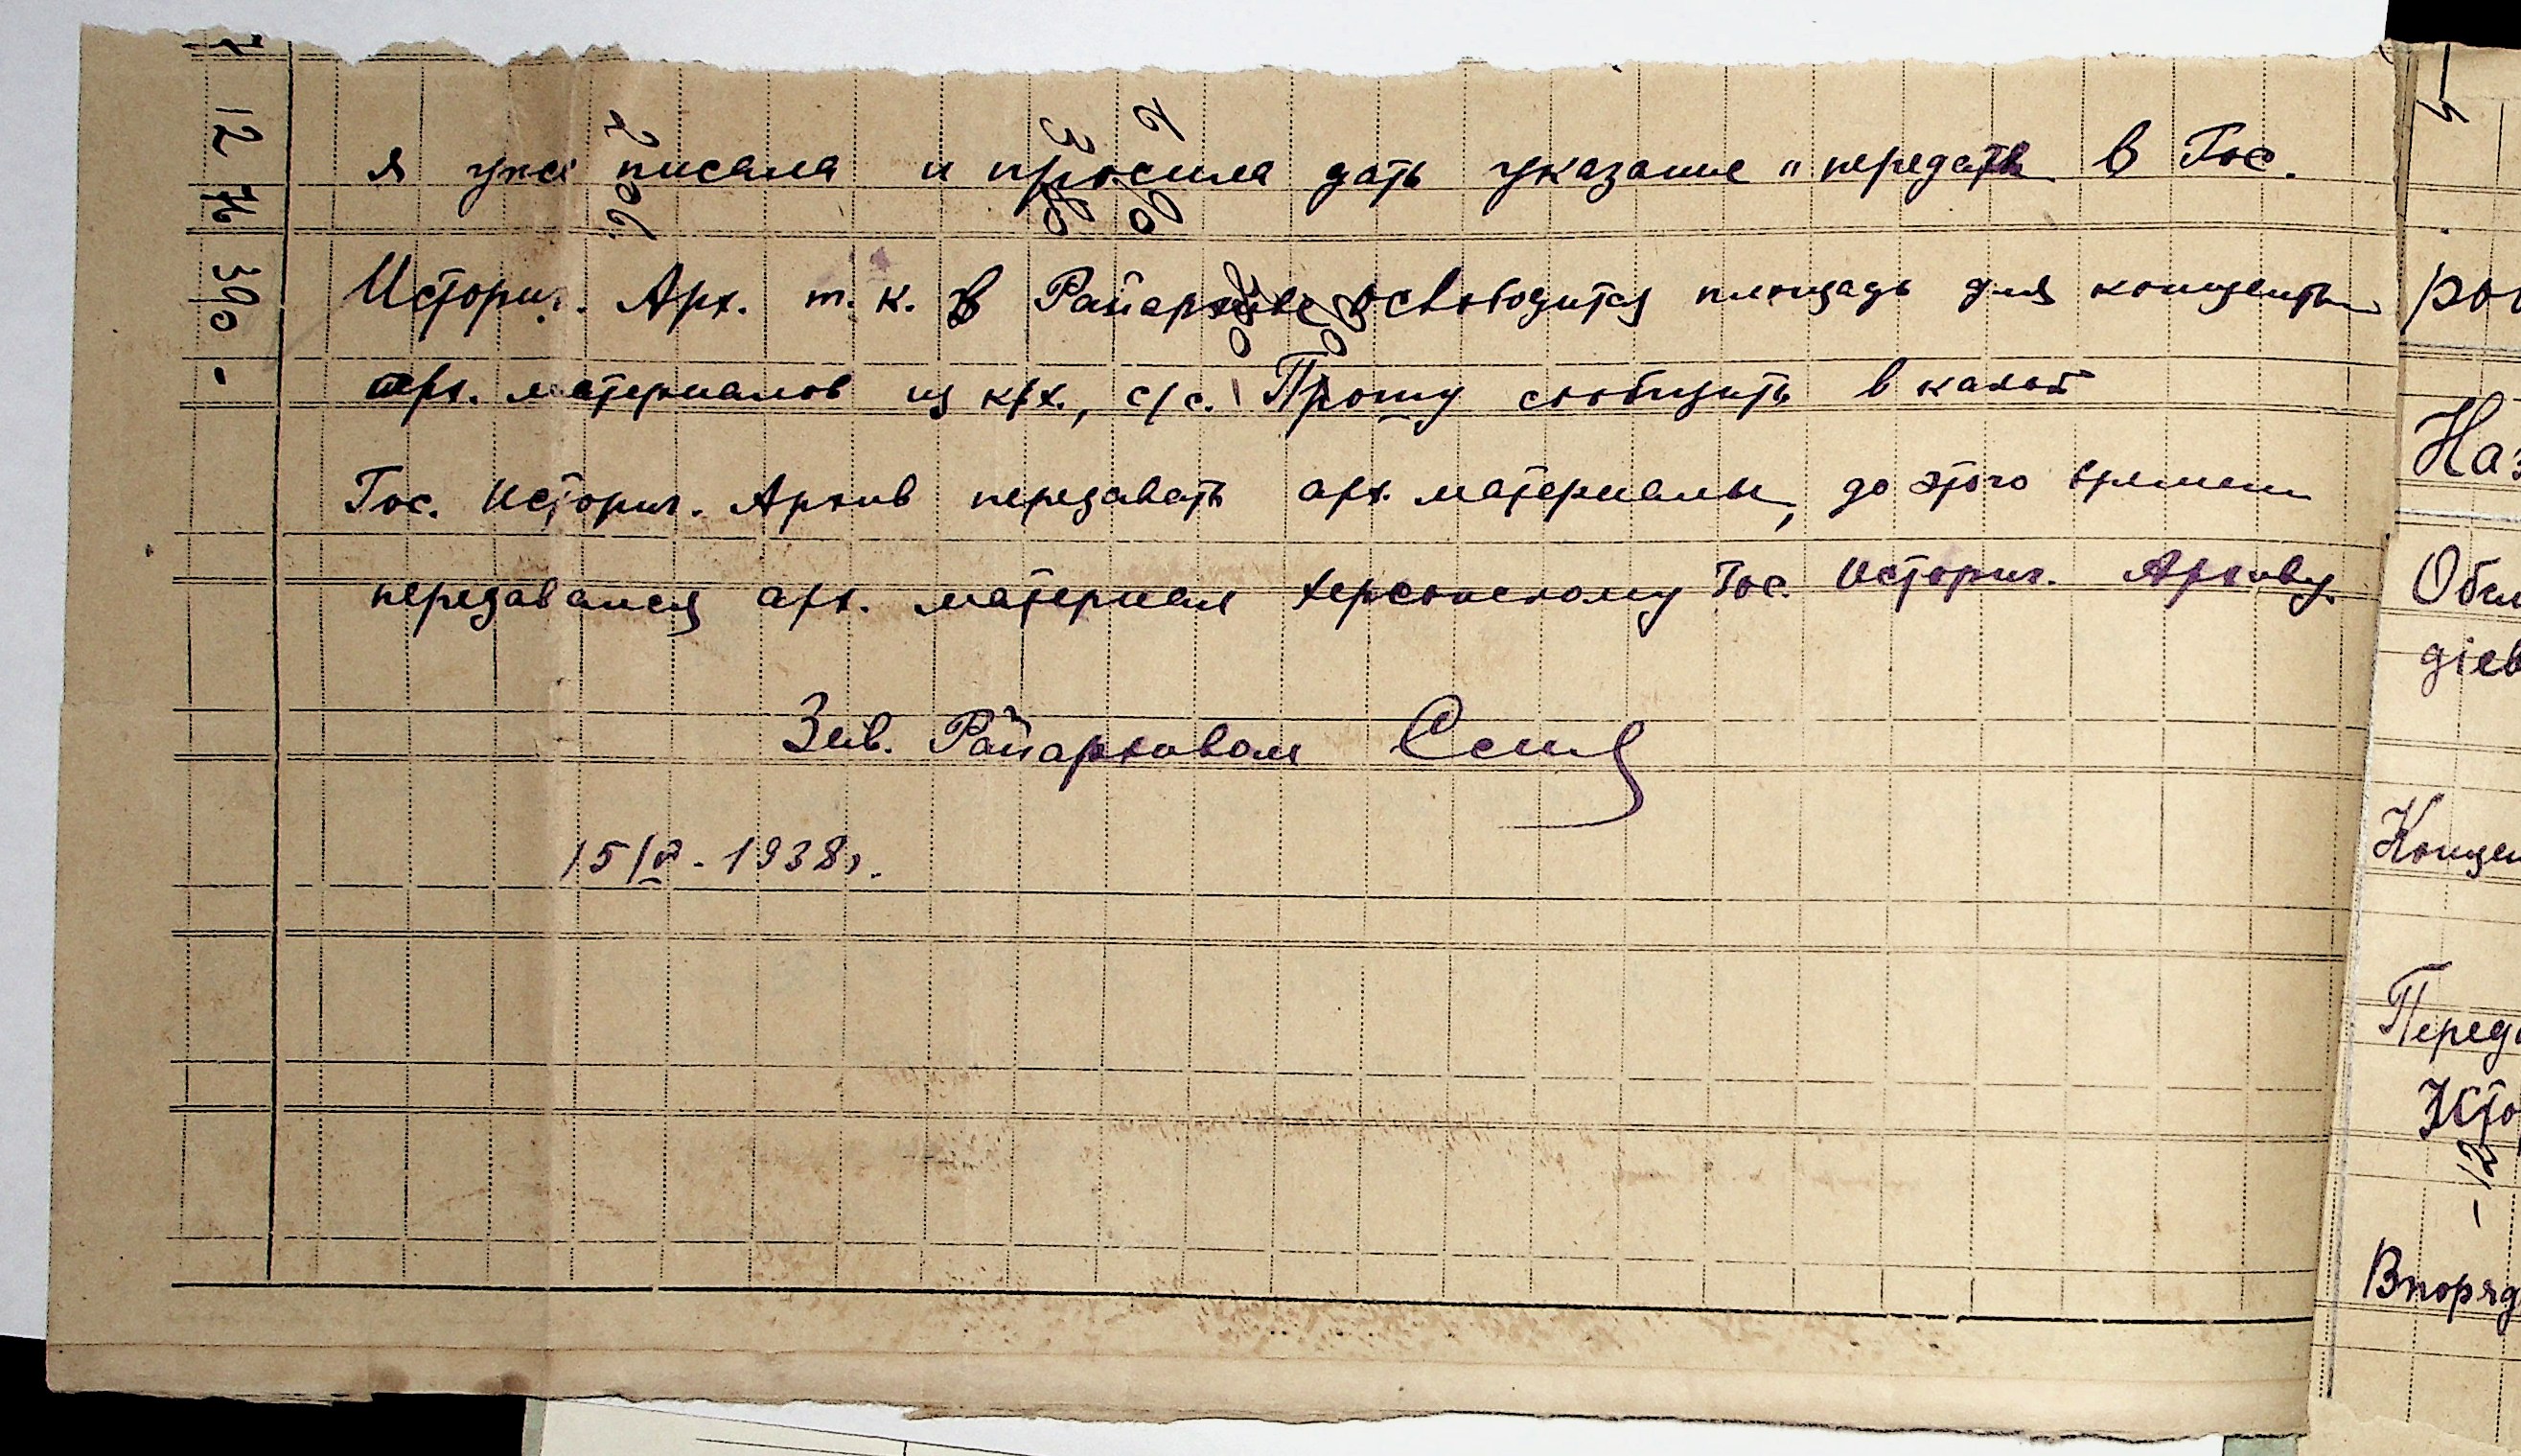 я уже писала и просила дать указание "передать в Гос.
Историч. Арх. т. к. в Райархиве освободится площадь для концентр.
арх. материалов из к/х., с/с. Прошу сообщить в какой
Гос. Историч. Архив передавать арх. материалы, до этого времени
передавался арх. материал Херсонскому Гос. Историч. Архиву.
Зав. Райархивом
15/V - 1938г.
12
74
390 -
ро
Наз
Обсл
дієв
Концен
Переда
Істо
12
Впоряд